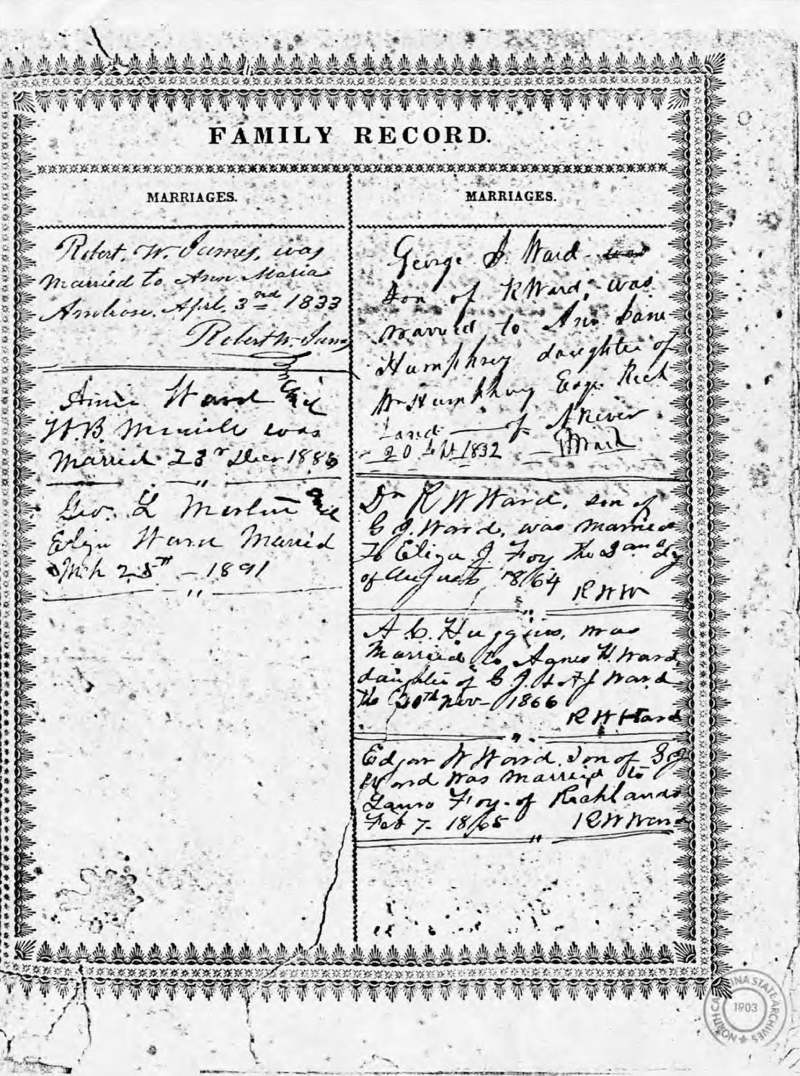 FAMILY RECORD.
MARRIAGES.
Robert. W. James, was
Married to Ann Maria
Ambrose, Apri. 3rd 1833
Robert W. James
Annie Ward and
W. B. was
Married 23rd Dec 1885
Geo. L and
Eliza Ward Married
Mch 25th - 1891
MARRIAGES.
George J. Ward was
Son of R Ward, was
married to Ann Jane
Humphrey daughter of
Wm Humphrey Esqr. Rich
Land of N River
20 1832 Ward
Dr R W Ward, son of
G J. Ward, was married
To Eliza J Foy The
of August 1864
R W W
A C. Huggins, was
Married to Agnes H. Ward,
daughter of G J & A J Ward
the 20th Nov - 1866
R W Ward
Edgar W Ward, Son of G J
Ward was Married to
Laura Foy - of Richlands
Feb 7 - 1868 R W Ward
NORTH CAROLINA STATE ARCHIVES
1903